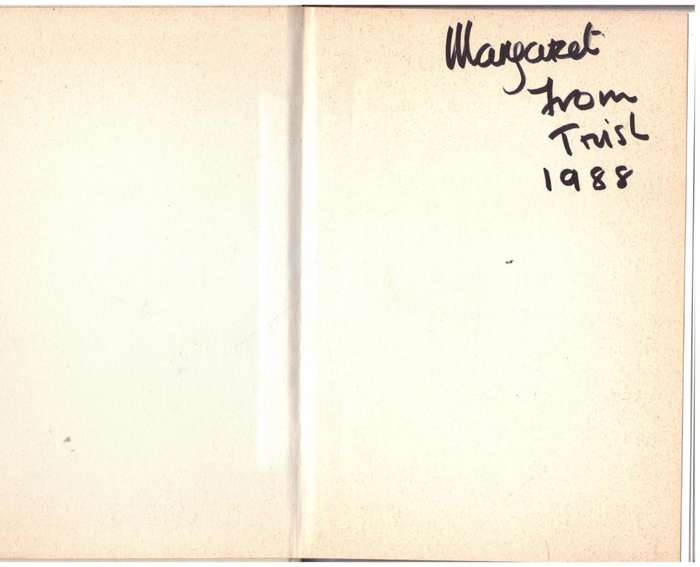 Margaret
from
Trish
1988